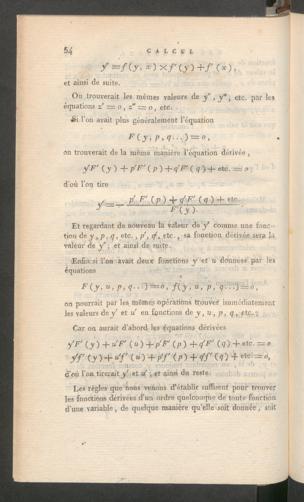 54 CALCUL
y' = f(y, x) × f'(y) + f'(x),
et ainsi de suite.
On trouverait les mêmes valeurs de y', y'', etc. par les
équations z' = 0, z'' = 0, etc.
Si l'on avait plus généralement l'équation
F(y, p, q...) = 0,
on trouverait de la même manière l'équation dérivée,
y'F'(y) + p'F'(p) + q'F'(q) + etc. = 0
d'où l'on tire
y' = − p'F'(p) + q'F'(q) + etc. / F'(y)
Et regardant de nouveau la valeur de y' comme une fonc-
tion de y, p, q, etc., p', q', etc., sa fonction dérivée sera la
valeur de y'', et ainsi de suite.
Enfin si l'on avait deux fonctions y et u données par les
équations
F(y, u, p, q...) = 0, f(y, u, p, q...) = 0,
on pourrait par les mêmes opérations trouver immédiatement
les valeurs de y' et u' en fonctions de y, u, p, q, etc.;
Car on aurait d'abord les équations dérivées
y'F'(y) + u'F'(u) + p'F'(p) + q'F'(q) + etc. = 0
y'f'(y) + u'f'(u) + p'f'(p) + q'f'(q) + etc. = 0,
d'où l'on tirerait y' et u', et ainsi du reste.
Les règles que nous venons d'établir suffisent pour trouver
les fonctions dérivées d'un ordre quelconque de toute fonction
d'une variable, de quelque manière qu'elle soit donnée, soit